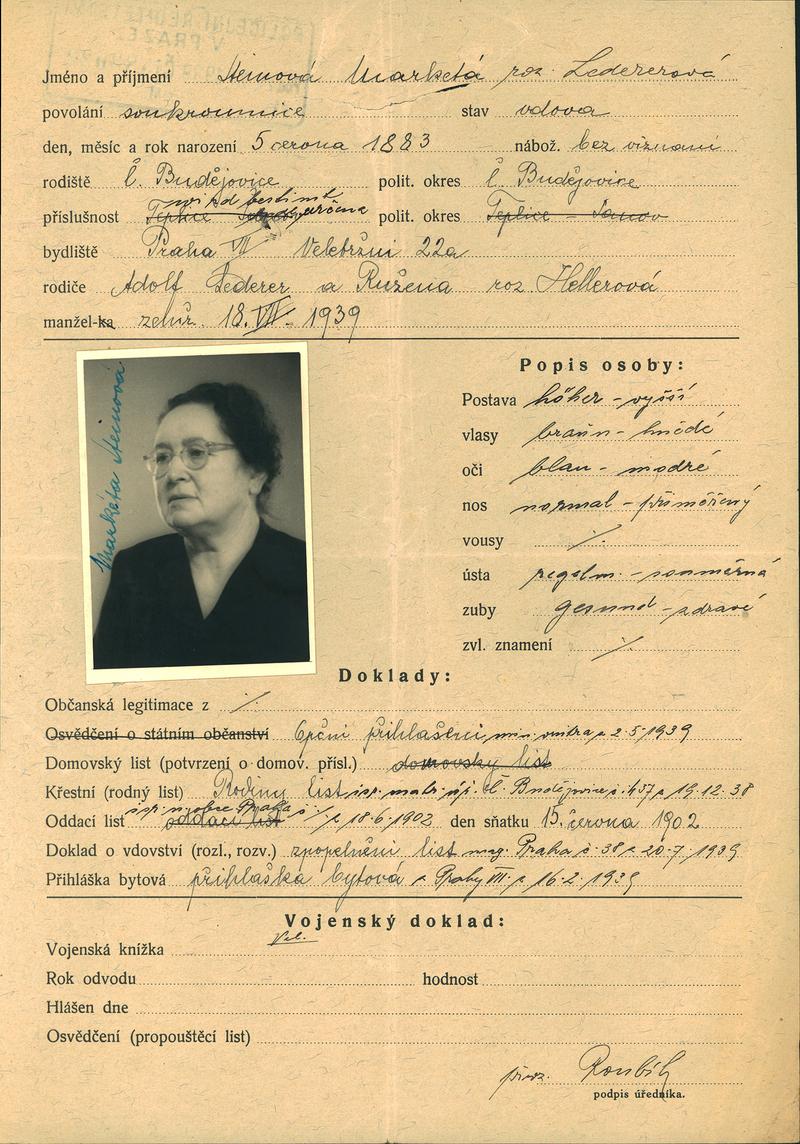 POLICEJNÍ ŘEDITELSTVÍ
V PRAZE
Jméno a příjmení Steinová Marketá roz. Ledererová
povolání soukromnice stav vdova
den, měsíc a rok narození 5 června 1883 nábož. bez vyznaní
rodiště Č. Budějovice polit. okres Č. Budějovice
příslušnost Teplice polit. okres Teplice - Šanov
bydliště Praha VII Veletržní 22a
rodiče Adolf Lederer a Ružena roz Hellerová
manžel-ka zemř. 18. VII. 1939
Markéta Steinová
Popis osoby:
Postava höher - vyšší
vlasy braun - hnědé
oči blau - modré
nos normal - přiměřený
vousy ./.
ústa regelm. - souměrná
zuby gesund - zdravé
zvl. znamení ./.
Doklady:
Občanská legitimace z ./.
Osvědčení o státním občanství Opční přihlášení min. vnitra z 2.5.1939
Domovský list (potvrzení o domov. přísl.) domovsky list
Křestní (rodný list) Rodiny list isr. matr. Č. Budějovice č. 457 z 19.12.38
Oddací list oddací list z 18.6.1902 den sňatku 15. června 1902
Doklad o vdovství (rozl., rozv.) zpopelnění list mag. Praha č. 38 z 20.7.1939
Přihláška bytová přihláška bytová z Prahy VII. z 16.2.1939
Vojenský doklad:
Vojenská knížka
Rok odvodu hodnost
Hlášen dne
Osvědčení (propouštěcí list)
podpis úředníka.